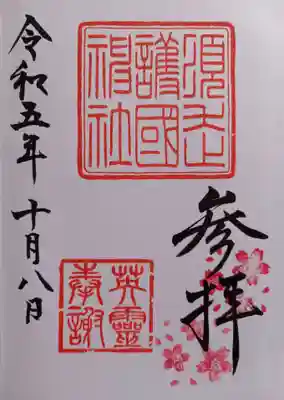 參拝
須走
護國
神社
英靈
奉謝
令和五年十月八日